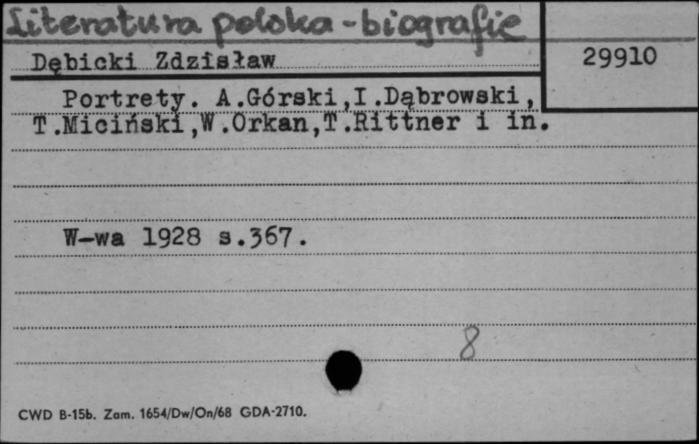 Literatura polska - biografie
Dębicki Zdzisław
29910
Portrety. A.Górski,I.Dąbrowski,
T.Miciński,W.Orkan,T.Rittner i in.
W-wa 1928 s.367.
8
CWD B-15b. Zam. 1654/Dw/On/68 GDA-2710.